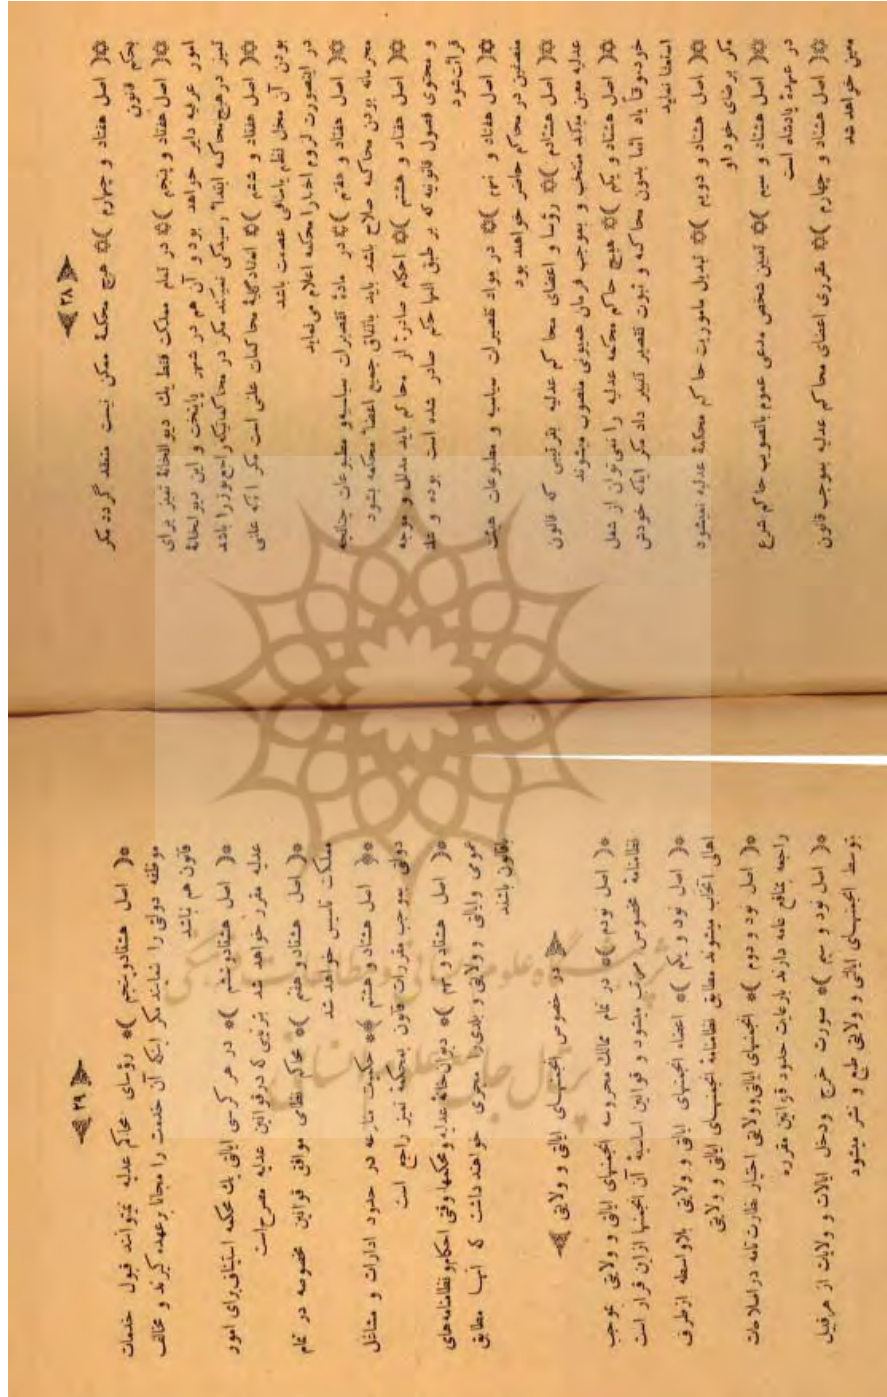 ﴿ ۲۸ ﴾
( اصل هفتاد و چهارم ) هیچ محکمهٔ ممکن نیست منعقد گردد مگر
بحکم قانون
( اصل هفتاد و پنجم ) در تمام مملکت فقط یك دیوانخانهٔ تمیز برای
امور عرفیه دایر خواهد بود و آن هم در شهر پایتخت و این دیوانخانهٔ
تمیز در هیچ محاکمه ابتداً رسیدگی نمیکند مگر در محاکماتیکه راجع بوزرا باشد
( اصل هفتاد و ششم ) انعقاد کلیهٔ محاکمات علنی است مگر آنکه علنی
بودن آن مخل نظم یا منافی عصمت باشد
در اینصورت لزوم اخفا را محکمه اعلام می نماید
( اصل هفتاد و هفتم ) در مادهٔ تقصیرات سیاسیه و مطبوعات چنانچه
محرمانه بودن محاکمه صلاح باشد باید باتفاق جمیع اعضاء محکمه بشود
( اصل هفتاد و هشتم ) احکام صادره از محاکم باید مدلل و موجه
و محتوی فصول قانونیه که بر طبق آنها حکم صادر شده است بوده و علنا
قرائت شود
( اصل هفتاد و نهم ) در مواد تقصیرات سیاسیه و مطبوعات هیئت
منصفین در محاکم حاضر خواهند بود
( اصل هشتادم ) رؤسا و اعضای محاکم عدلیه بترتیبی که قانون
عدلیه معین میکند منتخب و بموجب فرمان همیونی منصوب میشوند
( اصل هشتاد و یکم ) هیچ حاکم محکمه عدلیه را نمی توان از شغل
خود موقتاً یاد ائما بدون محاکمه و ثبوت تقصیر تغییر داد مگر اینکه خودش
استعفا نماید
( اصل هشتاد و دویم ) تبدیل ماموریت حاکم محکمهٔ عدلیه نمیشود
مگر برضای خود او
( اصل هشتاد و سیم ) تعیین شخص مدعی عموم باتصویب حاکم شرع
در عهدهٔ پادشاه است
( اصل هشتاد و چهارم ) مقرری اعضای محاکم عدلیه بموجب قانون
معین خواهد شد
﴿ ۲۹ ﴾
( اصل هشتادوپنجم ) رؤسای محاکم عدلیه نمیتوانند قبول خدمات
موظفه دولتی را نمایند مگر اینکه آن خدمت را مجانا برعهده گیرند و مخالف
قانون هم نباشد
( اصل هشتادوششم ) در هر کرسی ایالتی یك محکمه استیناف برای امور
عدلیه مقرر خواهد شد بترتیبی که در قوانین عدلیه مصرح است
( اصل هشتاد و هفتم ) محاکم نظامی موافق قوانین مخصوصه در تمام
مملکت تأسیس خواهد شد
( اصل هشتاد و هشتم ) حکمیت منازعه در حدود ادارات و مشاغل
دولتی بموجب مقررات قانون بمحکمهٔ تمیز راجع است
( اصل هشتاد و نهم ) دیوان خانهٔ عدلیه و محکمها وقتی احکام و نظامنامه های
عمومی و ایالتی و ولایتی و بلدی را مجری خواهند داشت که آنها مطابق
باقانون باشند
﴿ در خصوص انجمنهای ایالتی و ولایتی ﴾
( اصل نودم ) در تمام ممالك محروسه انجمنهای ایالتی و ولایتی بموجب
نظامنامهٔ مخصوص مرتب میشود و قوانین اساسیهٔ آن انجمنها از این قرار است
( اصل نود و یکم ) اعضاء انجمنهای ایالتی و ولایتی بلاواسطه از طرف
اهالی انتخاب میشوند مطابق نظامنامهٔ انجمنهای ایالتی و ولایتی
( اصل نود و دوم ) انجمنهای ایالتی و ولایتی اختیار نظارت تامه در اصلاحات
راجعه بمنافع عامه دارند بارعایت حدود قوانین مقرره
( اصل نود و سیم ) صورت خرج ودخل ایالات و ولایات از هرقبیل
بتوسط انجمنهای ایالتی و ولایتی طبع و نشر میشود
پژوهشگاه علوم انسانی و مطالعات فرهنگی
پرتال جامع علوم انسانی